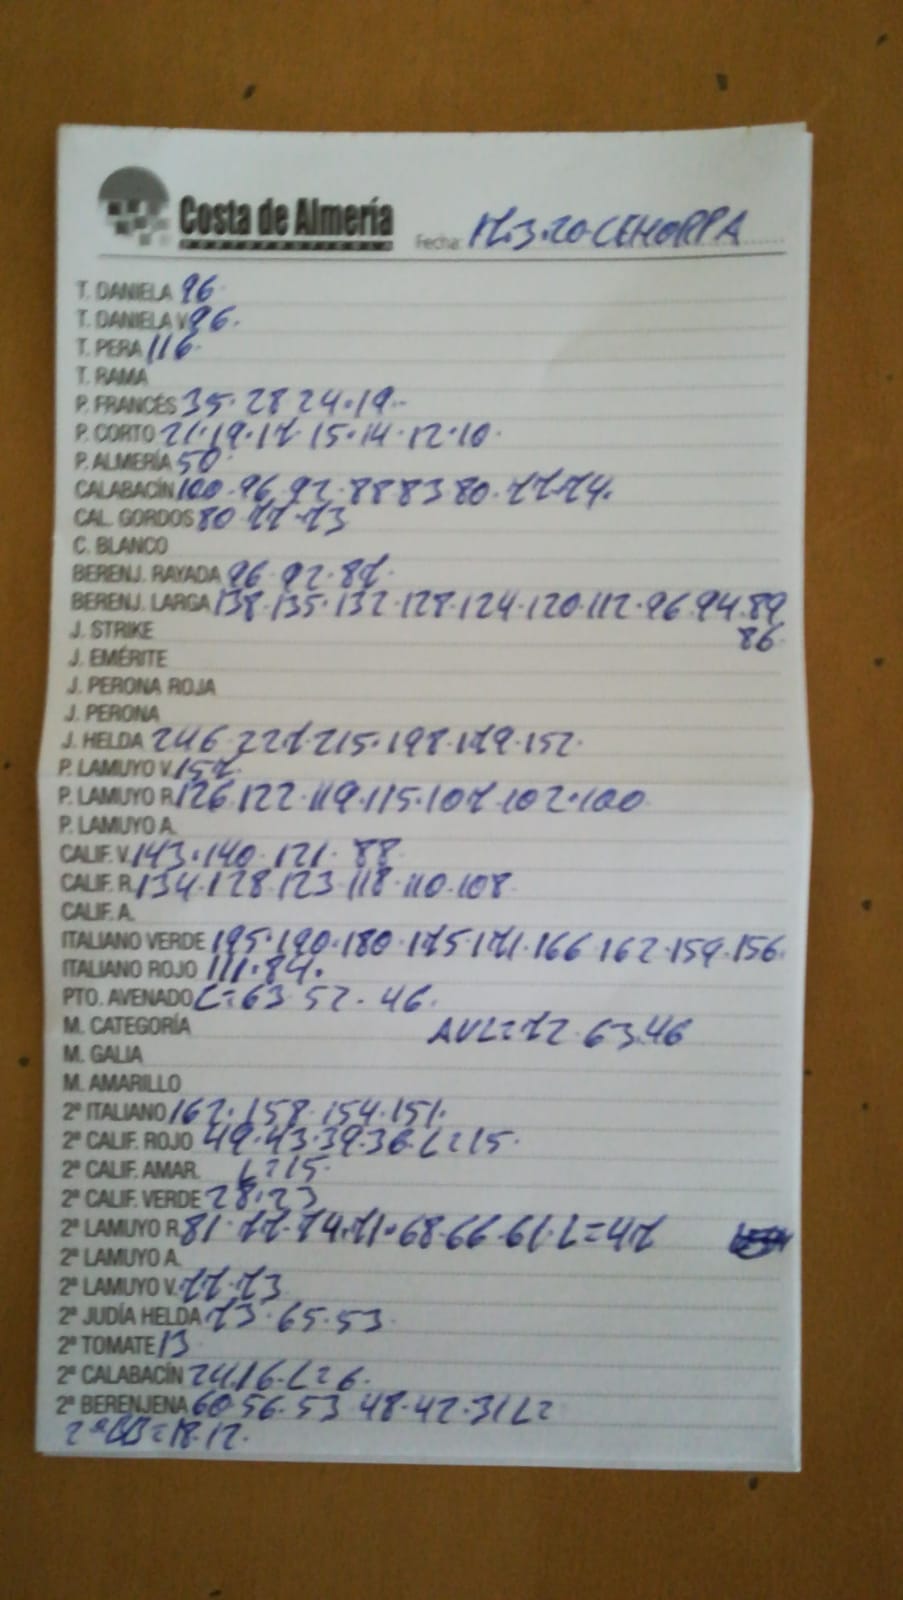 Costa de Almería
HORTOFRUTÍCOLA
Fecha: 17.3.20 CEHORPA
T. DANIELA 96.
T. DANIELA V 96.
T. PERA 116.
T. RAMA
P. FRANCÉS 35.28 24.19.
P. CORTO 21.19.17 15.14.12.10.
P. ALMERÍA 50.
CALABACÍN 100.96.92.88 83 80.77.74.
CAL. GORDOS 80.77.73
C. BLANCO
BERENJ. RAYADA 96.92.87.
BERENJ. LARGA 138.135.132.128.124.120.112.96.94.89
J. STRIKE 86.
J. EMÉRITE
J. PERONA ROJA
J. PERONA
J. HELDA 246.227.215.198.179.152.
P. LAMUYO V. 157.
P. LAMUYO R. 126.122.119.115.107.102.100
P. LAMUYO A.
CALIF. V. 143.140.121.88.
CALIF. R. 134.128.123.118.110.108.
CALIF. A.
ITALIANO VERDE 195.190.180.175.171.166.162.159.156.
ITALIANO ROJO 111.84.
PTO. AVENADO L=63.52.46.
M. CATEGORÍA AVL=72.63.46
M. GALIA
M. AMARILLO
2ª ITALIANO 162.158.154.151.
2ª CALIF. ROJO 49.43.39.36.L=15.
2ª CALIF. AMAR. L=15.
2ª CALIF. VERDE 28.23
2ª LAMUYO R. 81.77.74.71.68.66.61.L=47
2ª LAMUYO A.
2ª LAMUYO V. 77.73
2ª JUDÍA HELDA 73.65.53.
2ª TOMATE 13
2ª CALABACÍN 24.16.L=6.
2ª BERENJENA 60.56.53.48.42.31 L=
=18.12.